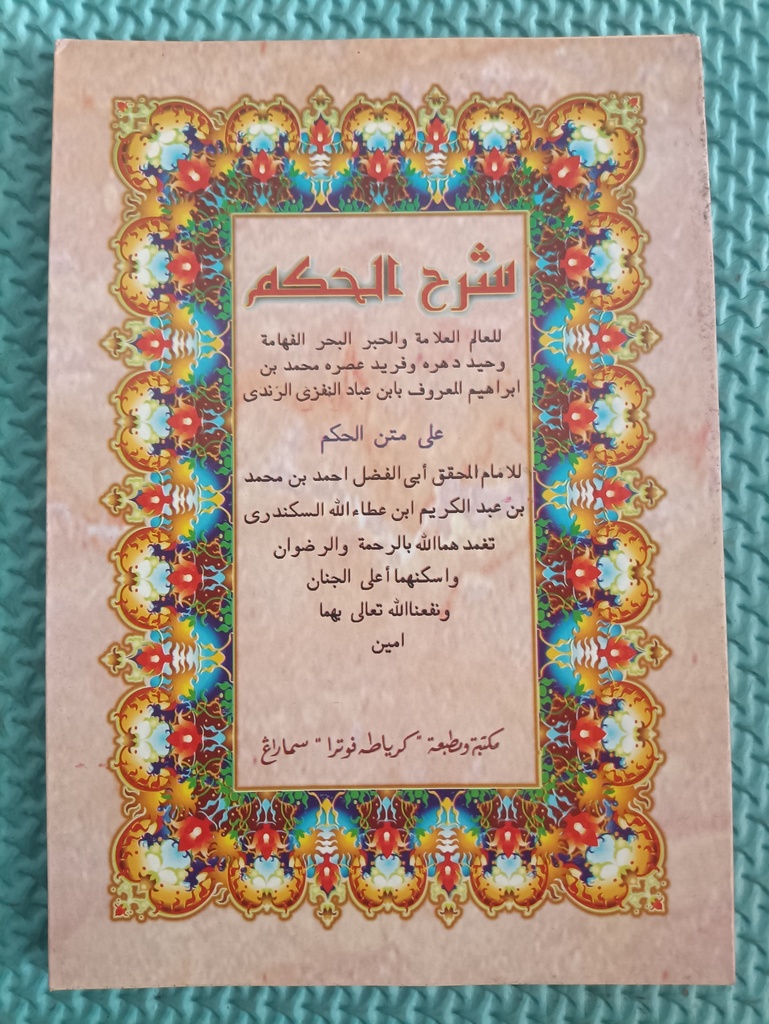 شرح الحكم
للعالم العلامة والحبر البحر الفهامة
وحيد دهره وفريد عصره محمد بن
ابراهيم المعروف بابن عباد النفزى الرندى
على متن الحكم
للامام المحقق أبى الفضل احمد بن محمد
بن عبد الكريم ابن عطاءالله السكندرى
تغمد هماالله بالرحمة والرضوان
واسكنهما أعلى الجنان
ونفعناالله تعالى بهما
امين
مكتبة ومطبعة "كرياطه فوترا" سماراڠ